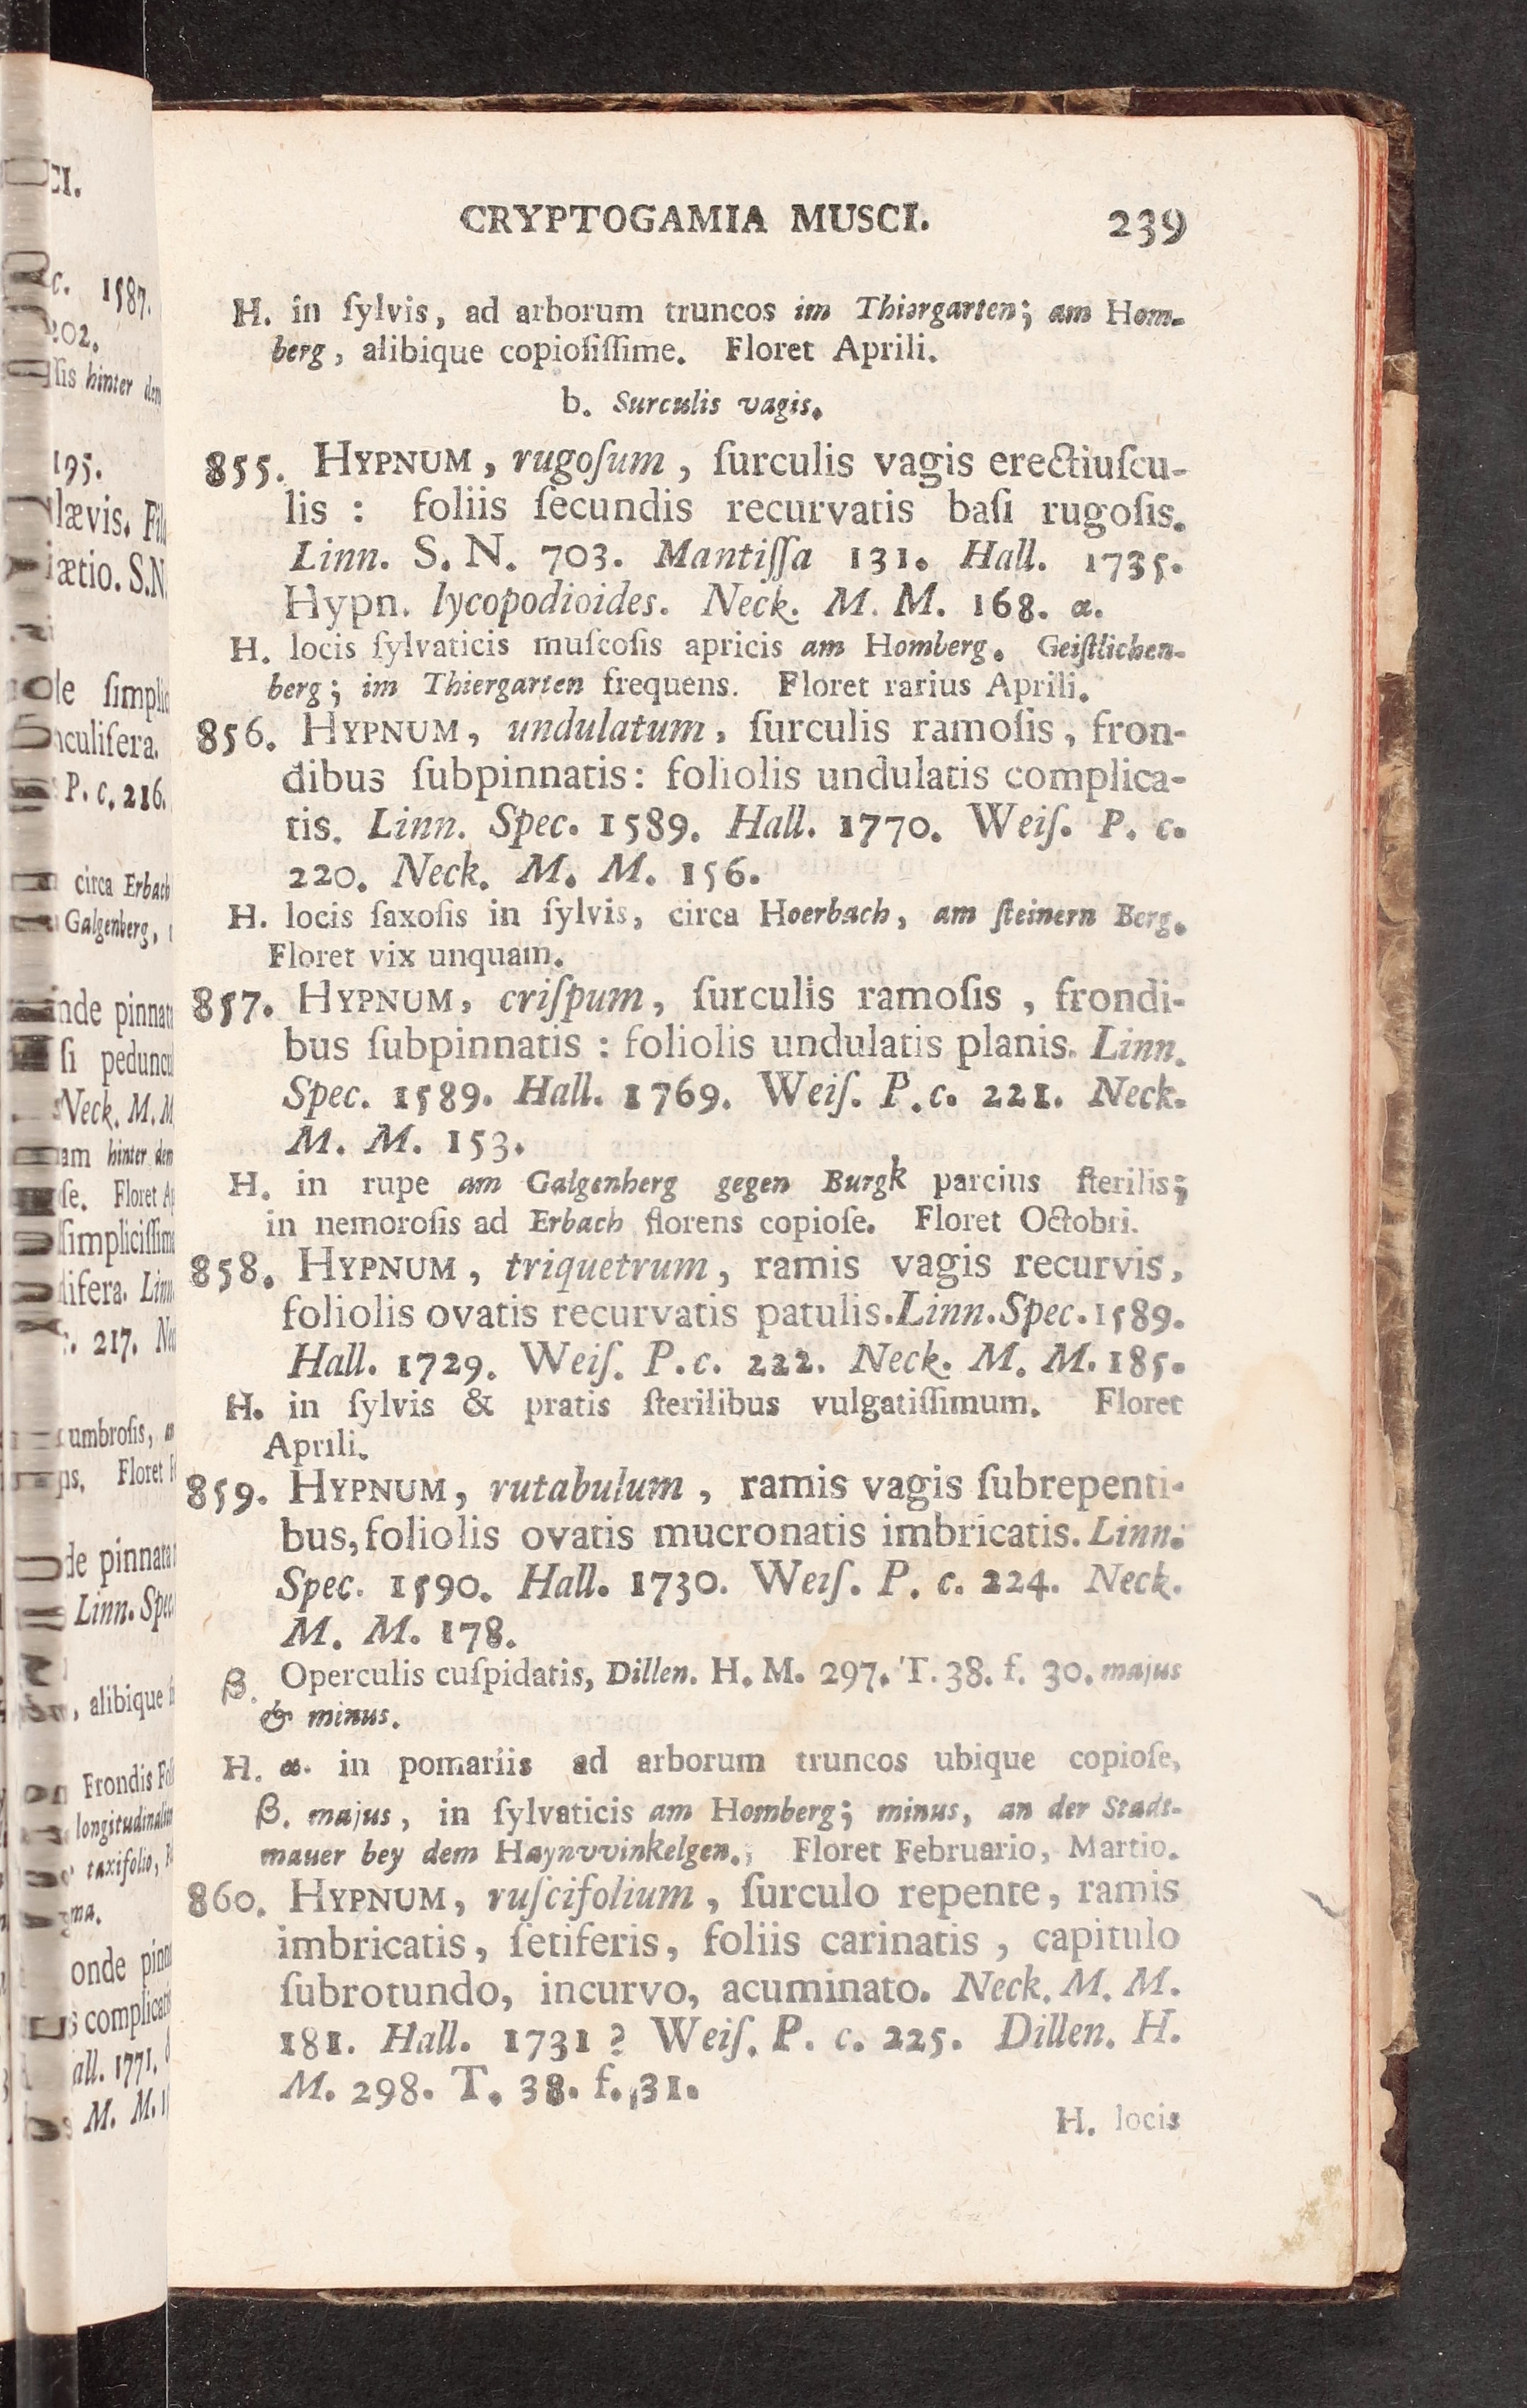 CRYPTOGAMIA MUSCI. 239
H. in ſylvis, ad arborum truncos im Thiergarten; am Hom-
berg, alibique copioſiſſime. Floret Aprili.
b. Surculis vagis.
855. HYPNUM, rugoſum, ſurculis vagis erectiuſcu-
lis : foliis ſecundis recurvatis baſi rugoſis.
Linn. S. N. 703. Mantiſſa 131. Hall. 1735.
Hypn. lycopodioides. Neck. M. M. 168. α.
H. locis ſylvaticis muſcoſis apricis am Homberg. Geiſtlichen-
berg; im Thiergarten frequens. Floret rarius Aprili.
856. HYPNUM, undulatum, ſurculis ramoſis, fron-
dibus ſubpinnatis: foliolis undulatis complica-
tis. Linn. Spec. 1589. Hall. 1770. Weiſ. P. c.
220. Neck. M. M. 156.
H. locis ſaxoſis in ſylvis, circa Hoerbach, am ſteinern Berg.
Floret vix unquam.
857. HYPNUM, criſpum, ſurculis ramoſis, frondi-
bus ſubpinnatis : foliolis undulatis planis. Linn.
Spec. 1589. Hall. 1769. Weiſ. P. c. 221. Neck.
M. M. 153.
H. in rupe am Galgenberg gegen Burgk parcius ſterilis;
in nemoroſis ad Erbach florens copioſe. Floret Octobri.
858. HYPNUM, triquetrum, ramis vagis recurvis,
foliolis ovatis recurvatis patulis. Linn. Spec. 1589.
Hall. 1729. Weiſ. P. c. 222. Neck. M. M. 185.
H. in ſylvis & pratis ſterilibus vulgatiſſimum. Floret
Aprili.
859. HYPNUM, rutabulum, ramis vagis ſubrepenti-
bus, foliolis ovatis mucronatis imbricatis. Linn.
Spec. 1590. Hall. 1730. Weiſ. P. c. 224. Neck.
M. M. 178.
β. Operculis cuſpidatis, Dillen. H. M. 297. T. 38. f. 30. majus
& minus.
H. α. in pomariis ad arborum truncos ubique copioſe,
β. majus, in ſylvaticis am Homberg; minus, an der Stadt-
mauer bey dem Haynvvinkelgen. Floret Februario, Martio.
860. HYPNUM, ruſcifolium, ſurculo repente, ramis
imbricatis, ſetiferis, foliis carinatis, capitulo
ſubrotundo, incurvo, acuminato. Neck. M. M.
181. Hall. 1731 ? Weiſ. P. c. 225. Dillen. H.
M. 298. T. 38. f. 31.
H. locis